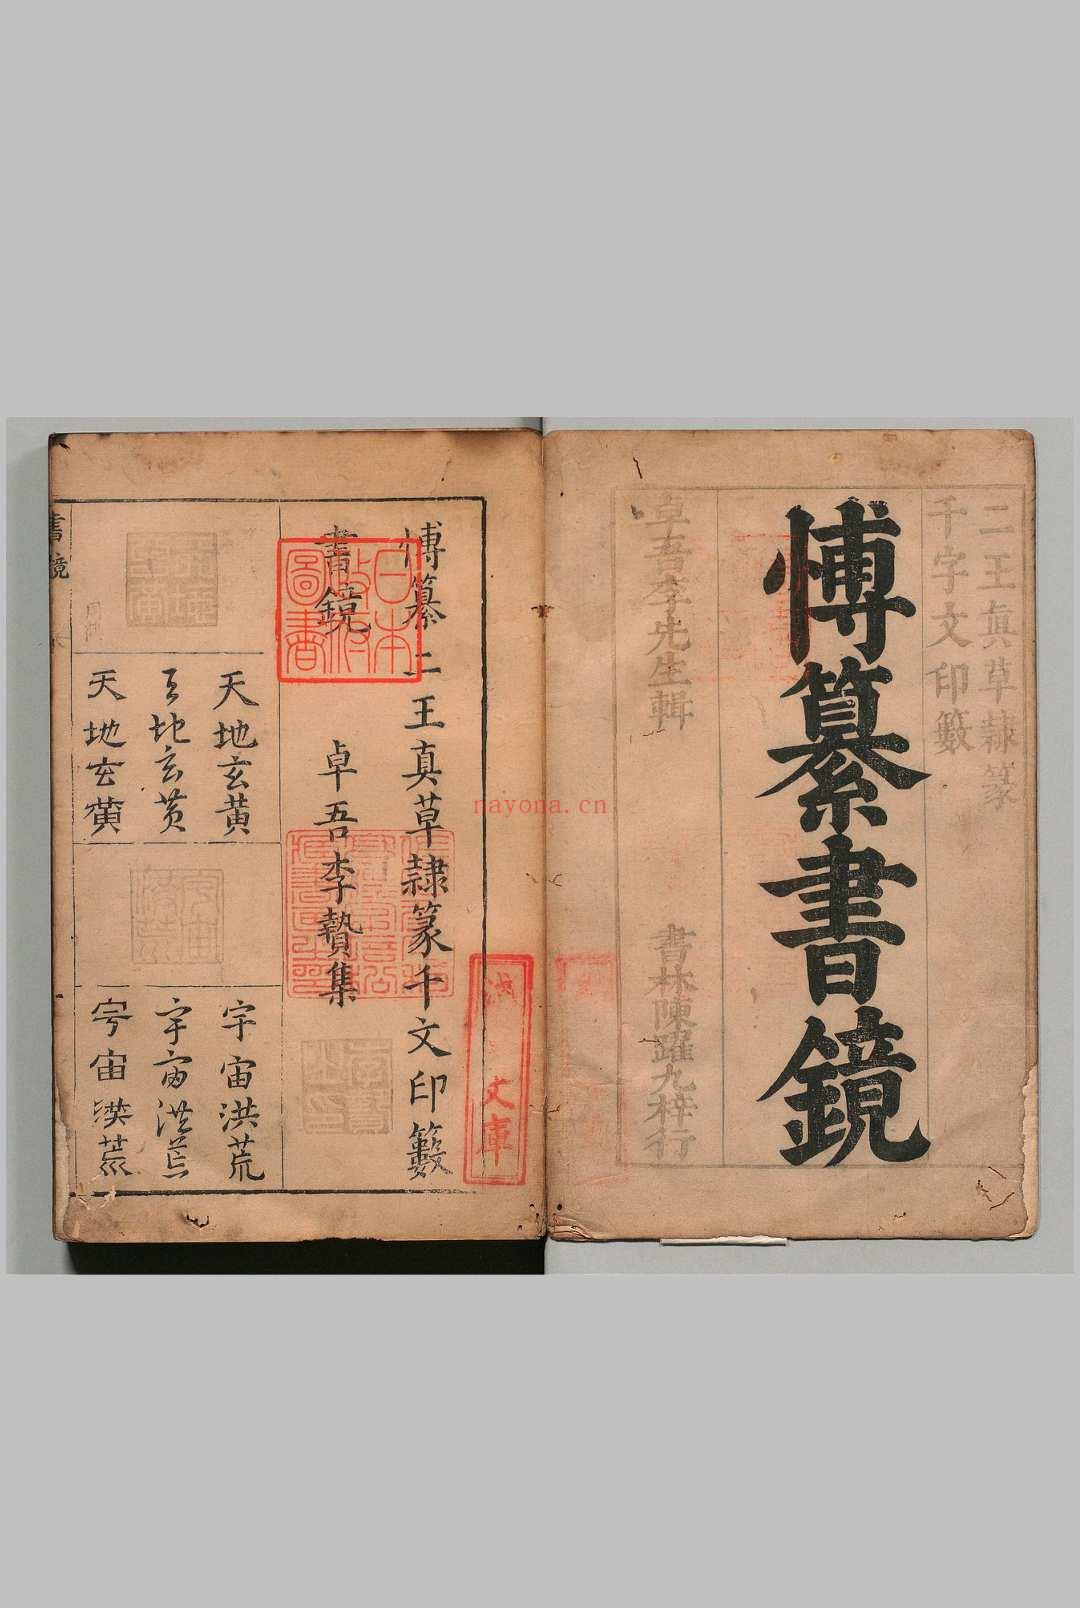 二王真草隸篆
千字文印籔
博纂書鏡
卓吾李先生輯
書林陳躍九梓行
博纂二王真草隸篆千文印籔
書鏡
卓吾李贄集
日本
政府
圖書
文庫
天地玄黄
天地玄黄
天地玄黄
宇宙洪荒
宇宙洪荒
宇宙洪荒
書鏡
nayona.cn